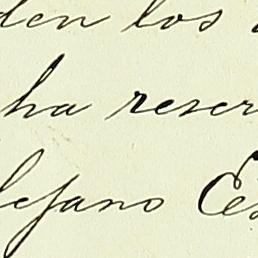 den los
ha reser
lejano Es